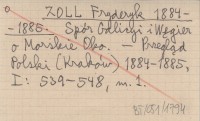 ZOLL Fryderyk 1884-
-1885. Spór Galicji i Węgier
o Morskie Oko. — Przegląd
Polski (Kraków) 1884-1885,
I: 539-548, m. 1.